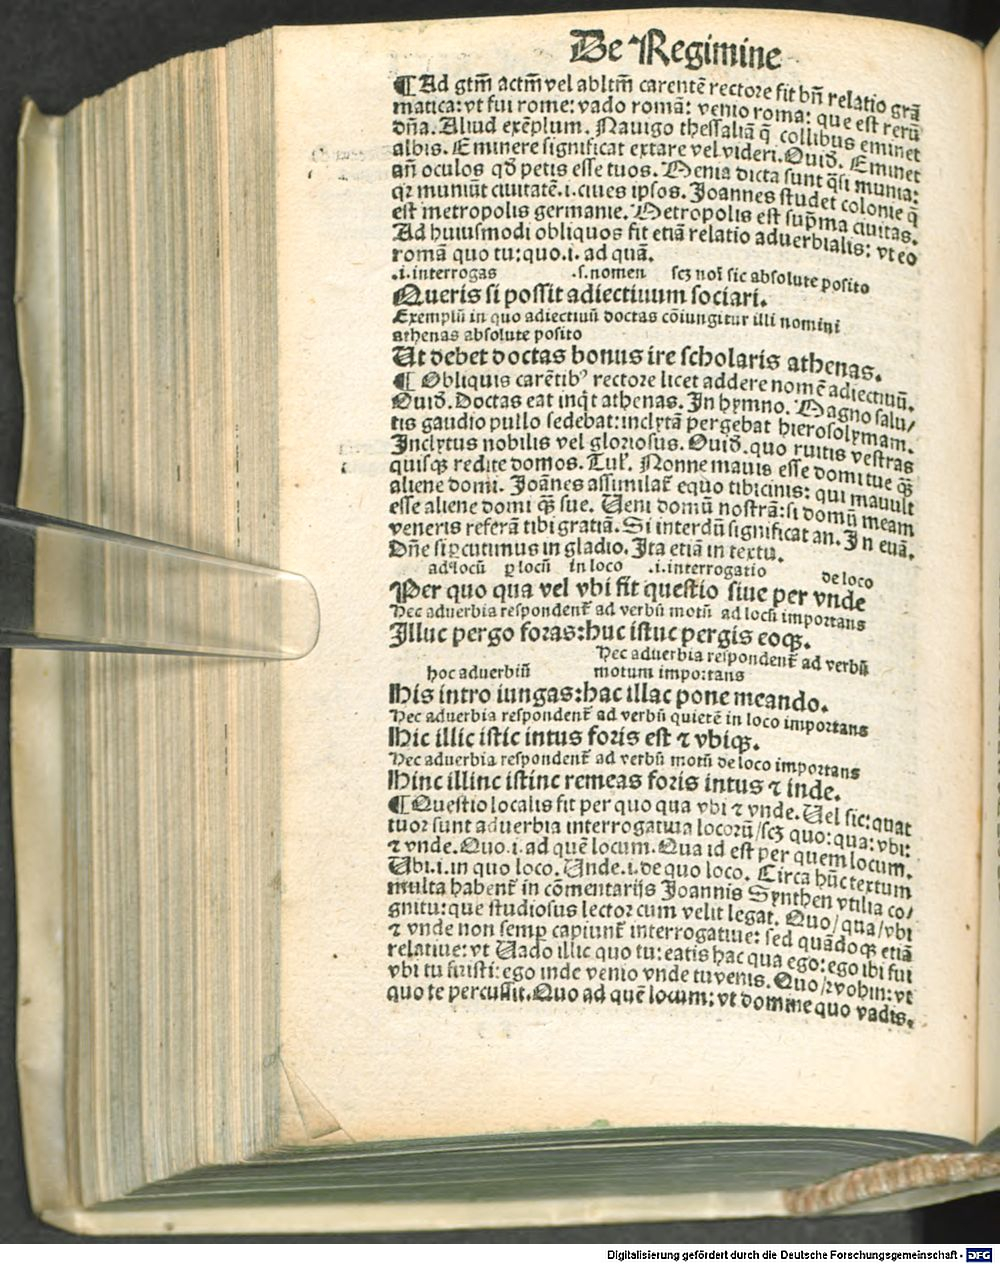 De Regimine
¶ Ad gtm̄ actm̄ vel abltm̄ carentē rectore fit bn̄ relatio grā
matica: vt fui rome: vado romā: venio roma: que est rerū
dn̄a. Aliud exēplum. Nauigo thessaliā q̄ collibus eminet
albis. Eminere significat extare vel videri. Ouid̄. Eminet
an̄ oculos qd̄ petis esse tuos. Menia dicta sunt q̄si munia:
qꝛ muniūt ciuitatē.i. ciues ipsos. Joannes studet colonie q̄
est metropolis germanie. Metropolis est sup̄ma ciuitas.
Ad huiusmodi obliquos fit etiā relatio aduerbialis: vt eo
romā quo tu: quo.i. ad quā.
.i. interrogas .s. nomen scꝫ noī sic absolute posito
Queris si possit adiectiuum sociari.
Exemplū in quo adiectiuū doctas cōiungitur illi nomini
athenas absolute posito
Ut debet doctas bonus ire scholaris athenas.
¶ Obliquis carētibꝰ rectore licet addere nomē adiectiuū.
Ouid̄. Doctas eat inq̇t athenas. In hymno. Magno salu/
tis gaudio pullo sedebat: inclytā pergebat hierosolymam.
Inclytus nobilis vel gloriosus. Ouid̄. quo ruitis vestras
quisqꝫ redite domos. Tul̓. Nonne mauis esse domi tue qꝫ̄
aliene domi. Joānes assimilat̄ equo tibicinis: qui mauult
esse aliene domi qꝫ̄ sue. Ueni domū nostrā: si domū meam
veneris referā tibi gratiā. Si interdū significat an. In euā.
Dn̄e si ꝑcutimus in gladio. Ita etiā in textu.
ad q̄ locū ꝑ locū in loco .i. interrogatio de loco
Per quo qua vel vbi fit questio siue per vnde
Hec aduerbia respondent̄ ad verbū motū ad locū importans
Illuc pergo foras: huc istuc pergis eoqꝫ.
Hec aduerbia respondent̄ ad verbū
hoc aduerbiū motum importans
His intro iungas: hac illac pone meando.
Hec aduerbia respondent̄ ad verbū quietē in loco importans
Hic illic istic intus foris est ⁊ vbiqꝫ.
Hec aduerbia respondent̄ ad verbū motū de loco importans
Hinc illinc istinc remeas foris intus ⁊ inde.
¶ Questio localis fit per quo qua vbi ⁊ vnde. Uel sic: quat
tuor sunt aduerbia interrogatiua locorū/scꝫ quo: qua: vbi:
⁊ vnde. Quo.i. ad quē locum. Qua id est per quem locum.
Ubi.i. in quo loco. Unde.i. de quo loco. Circa hūc textum
multa habent̄ in cōmentarijs Joannis Synthen vtilia co/
gnitu: que studiosus lector cum velit legat. Quo/qua/vbi
⁊ vnde non semꝑ capiunt̄ interrogatiue: sed quādoqꝫ etiā
relatiue: vt Uado illic quo tu: eatis hac qua ego: ego ibi fui
vbi tu fuisti: ego inde venio vnde tu venis. Quo/⁊ vobin: vt
quo te percussit. Quo ad quē locum: vt domine quo vadis.
Digitalisierung gefördert durch die Deutsche Forschungsgemeinschaft - DFG